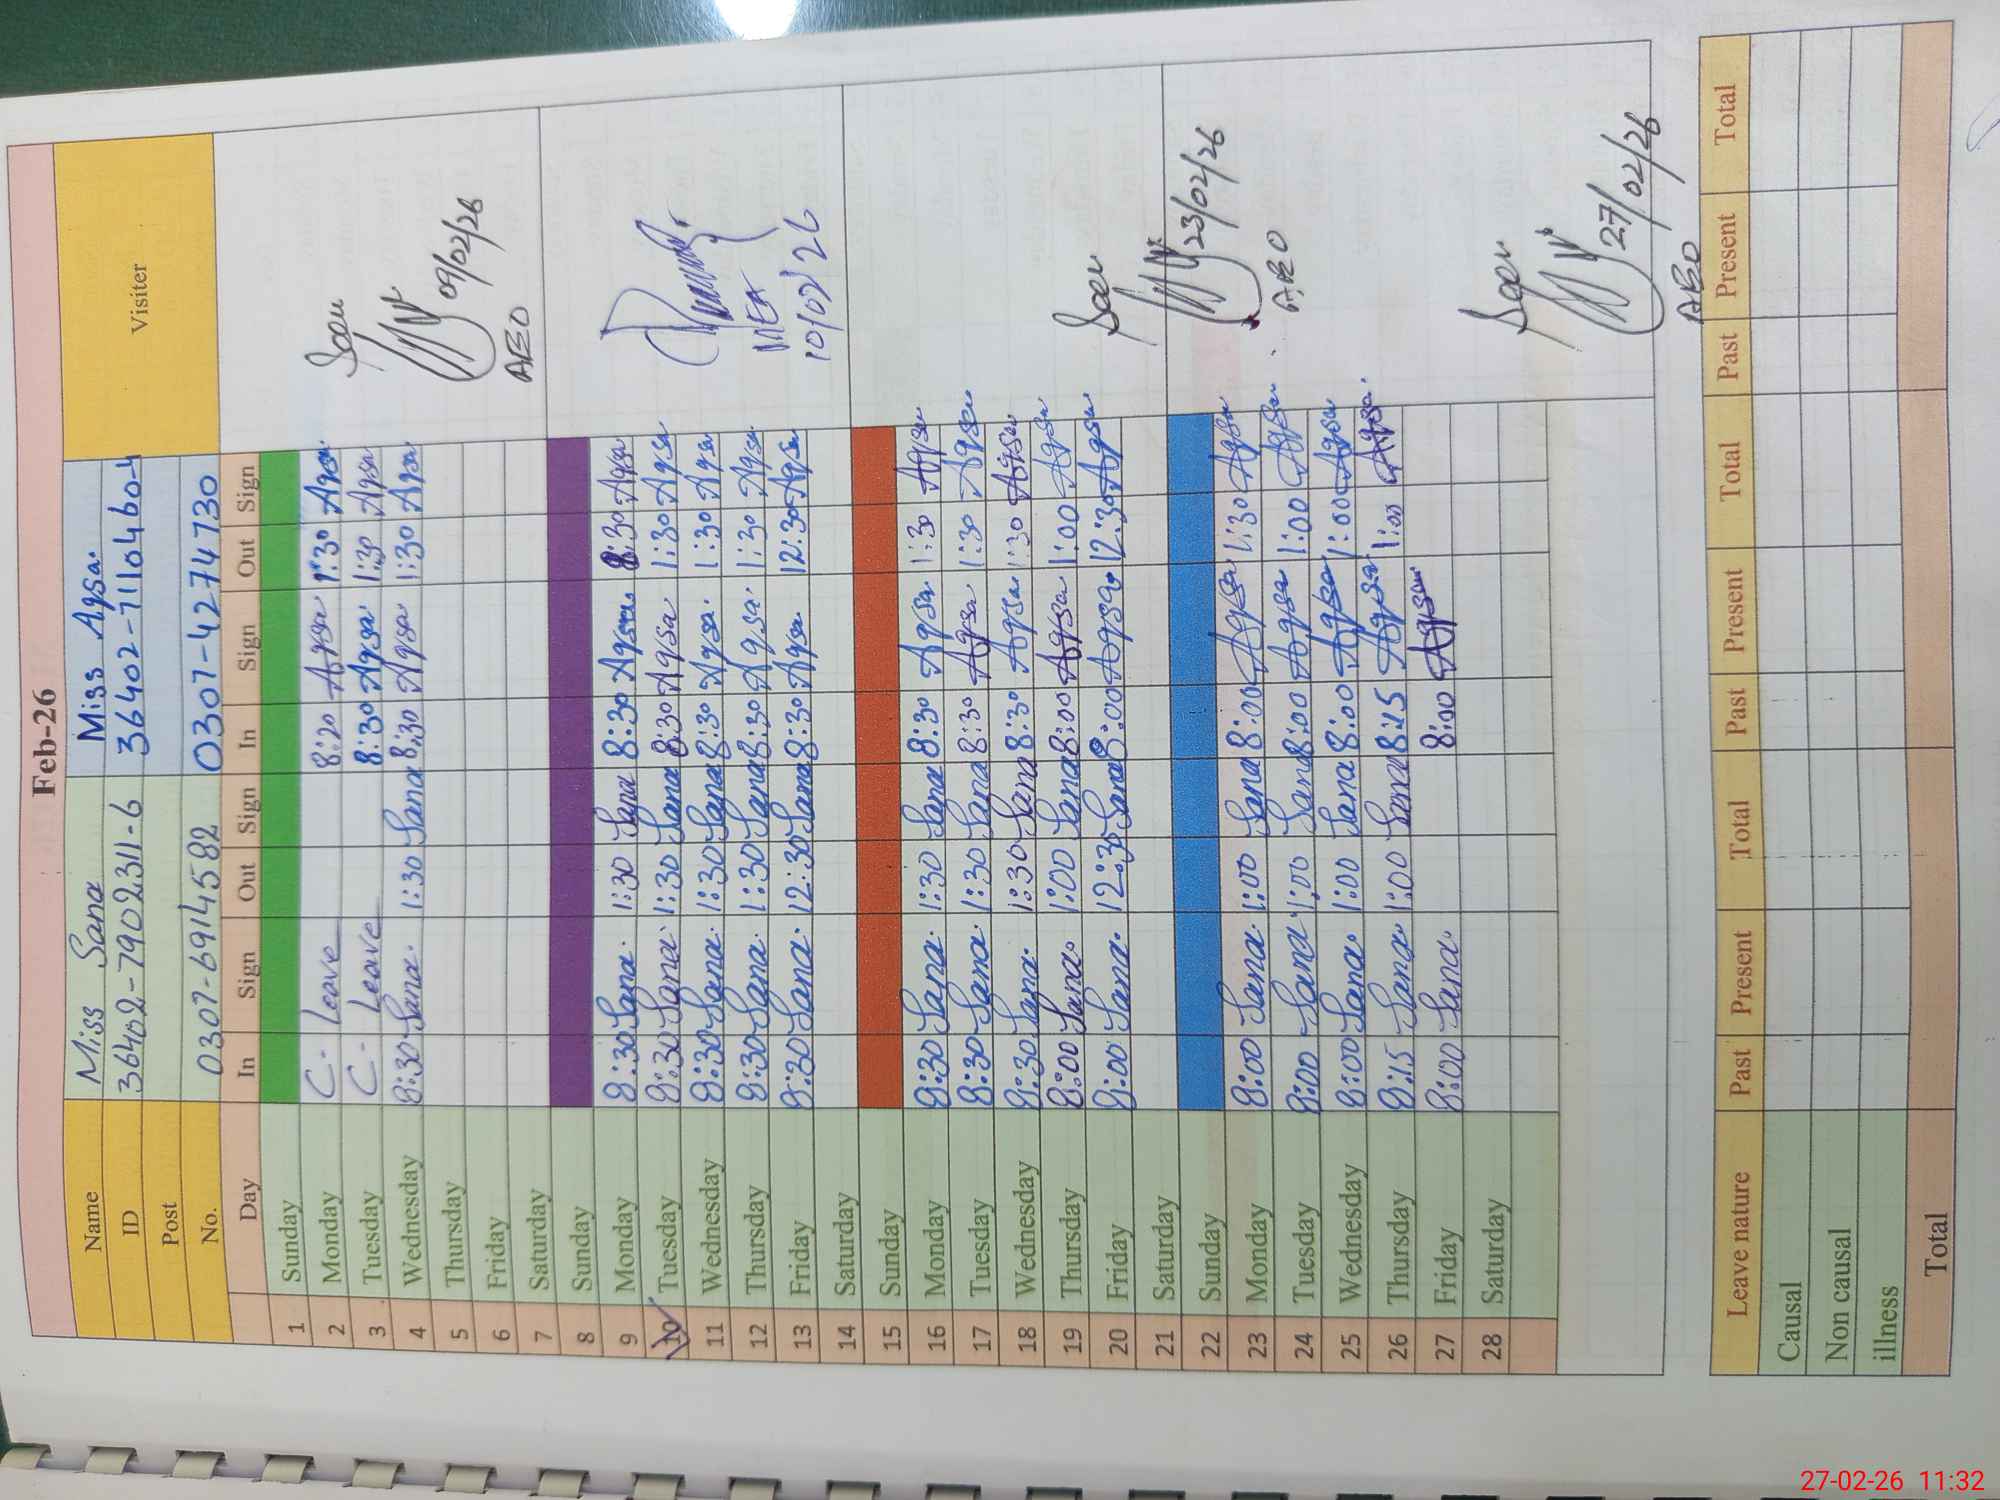 Feb-26
Name Miss Sana Miss Aqsa. Visiter
ID 36402-7902311-6 36402-7110460-4
Post
No. 0307-6914582 0307-4274730
Day In Sign Out Sign In Sign Out Sign
1 Sunday
2 Monday C- Leave 8:20 Aqsa 1:30 Aqsa
3 Tuesday C- Leave 8:30 Aqsa 1:30 Aqsa
4 Wednesday 8:30 Sana. 1:30 Sana 8:30 Aqsa 1:30 Aqsa
5 Thursday
6 Friday
7 Saturday
Seen
09/02/26
AEO
8 Sunday
9 Monday 8:30 Sana. 1:30 Sana 8:30 Aqsa 8:30 Aqsa
10 Tuesday 8:30 Sana. 1:30 Sana 8:30 Aqsa 1:30 Aqsa
11 Wednesday 8:30 Sana. 1:30 Sana 8:30 Aqsa. 1:30 Aqsa
12 Thursday 8:30 Sana. 1:30 Sana 8:30 Aqsa. 1:30 Aqsa
13 Friday 8:30 Sana. 12:30 Sana 8:30 Aqsa. 12:30 Aqsa
14 Saturday
MEA
10/02/26
15 Sunday
16 Monday 8:30 Sana. 1:30 Sana 8:30 Aqsa 1:30 Aqsa
17 Tuesday 8:30 Sana. 1:30 Sana 8:30 Aqsa 1:30 Aqsa
18 Wednesday 8:30 Sana. 1:30 Sana 8:30 Aqsa 1:30 Aqsa
19 Thursday 8:00 Sana. 1:00 Sana 8:00 Aqsa 1:00 Aqsa
20 Friday 8:00 Sana. 12:30 Sana 8:00 Aqsa 12:30 Aqsa
21 Saturday
Seen
23/02/26
AEO
22 Sunday
23 Monday 8:00 Sana. 1:00 Sana 8:00 Aqsa 1:30 Aqsa
24 Tuesday 8:00 Sana. 1:00 Sana 8:00 Aqsa 1:00 Aqsa
25 Wednesday 8:00 Sana. 1:00 Sana 8:00 Aqsa 1:00 Aqsa
26 Thursday 8:15 Sana. 1:00 Sana 8:15 Aqsa 1:00 Aqsa.
27 Friday 8:00 Sana. 8:00 Aqsa
28 Saturday
Seen
27/02/26
AEO
Leave nature Past Present Total Past Present Total Past Present Total
Causal
Non causal
illness
Total
27-02-26 11:32